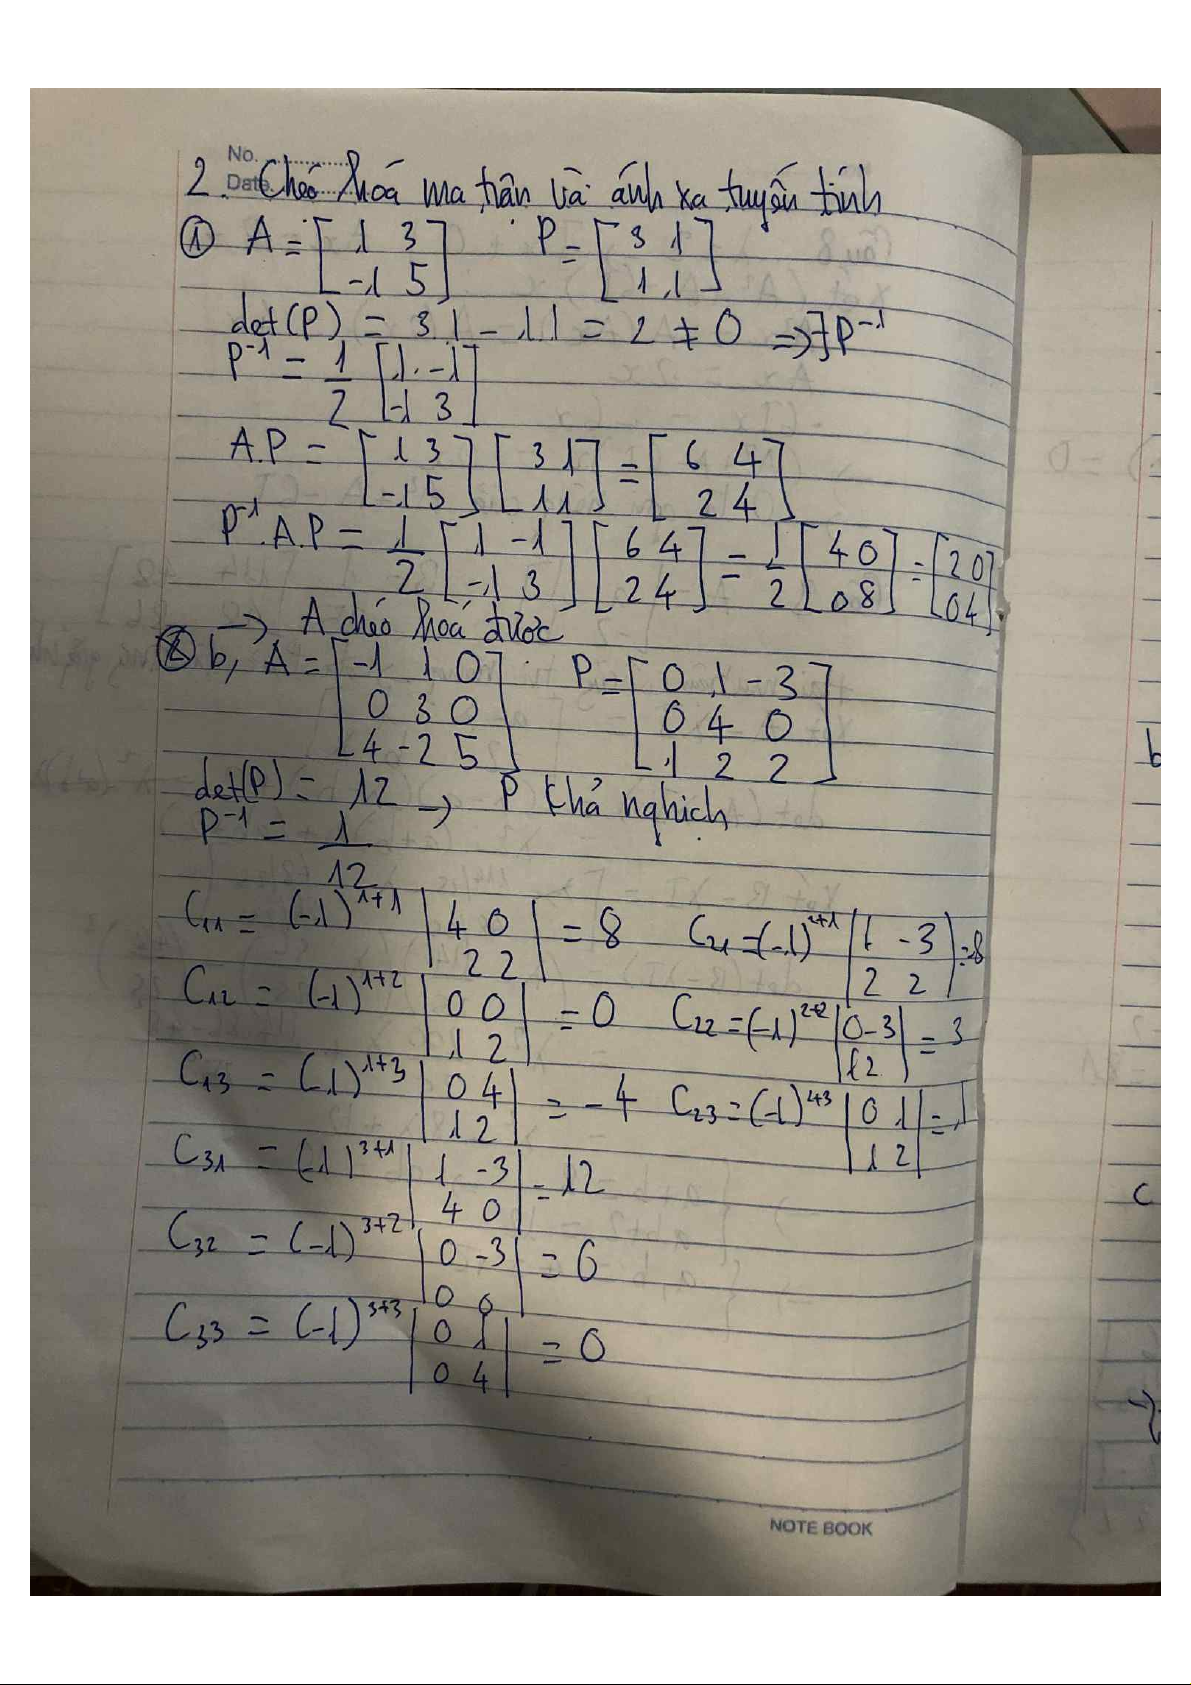 No. ............
Date.
2. Chéo hóa ma trận và ánh xạ tuyến tính
① A = [1 3; -1 5] P = [3 1; 1 1]
det(P) = 3.1 - 1.1 = 2 ≠ 0 => ∃P⁻¹
P⁻¹ = 1/2 [1 -1; -1 3]
A.P = [1 3; -1 5] [3 1; 1 1] = [6 4; 2 4]
P⁻¹.A.P = 1/2 [1 -1; -1 3] [6 4; 2 4] = 1/2 [4 0; 0 8] = [2 0; 0 4]
→ A chéo hóa được
b, A = [-1 1 0; 0 3 0; 4 -2 5] P = [0 1 -3; 0 4 0; 1 2 2]
det(P) = 12 → P khả nghịch
P⁻¹ = 1/12
C₁₁ = (-1)¹⁺¹ |4 0; 2 2| = 8 C₂₁ = (-1)²⁺¹ |1 -3; 2 2| = -8
C₁₂ = (-1)¹⁺² |0 0; 1 2| = 0 C₂₂ = (-1)²⁺² |0 -3; 1 2| = 3
C₁₃ = (-1)¹⁺³ |0 4; 1 2| = -4 C₂₃ = (-1)²⁺³ |0 1; 1 2| = 1
C₃₁ = (-1)³⁺¹ |1 -3; 4 0| = 12
C₃₂ = (-1)³⁺² |0 -3; 0 0| = 0
C₃₃ = (-1)³⁺³ |0 1; 0 4| = 0
NOTE BOOK